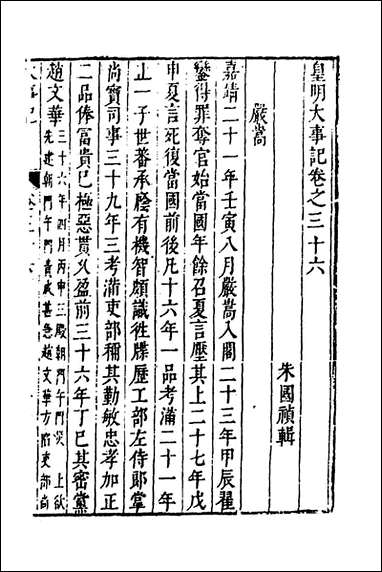 皇明大事記卷之三十六
朱國禎輯
嚴嵩
嘉靖二十一年壬寅八月嚴嵩入閣二十三年甲辰翟
鑾得罪奪官始當國年餘召夏言壓其上二十七年戊
申夏言死復當國前後凡十六年一品考滿二十一年
止一子世蕃承廕有機智頗識徃牒歷工部左侍郎掌
尚寶司事三十九年三考滿吏部稱其勤敏忠孝加正
二品俸富貴已極惡貫乂盈前三十六年丁巳其密黨
趙文華三十六年四月丙申三殿朝門午門災上欲
先建朝門午門責成甚急趙文華方陷吏部尚